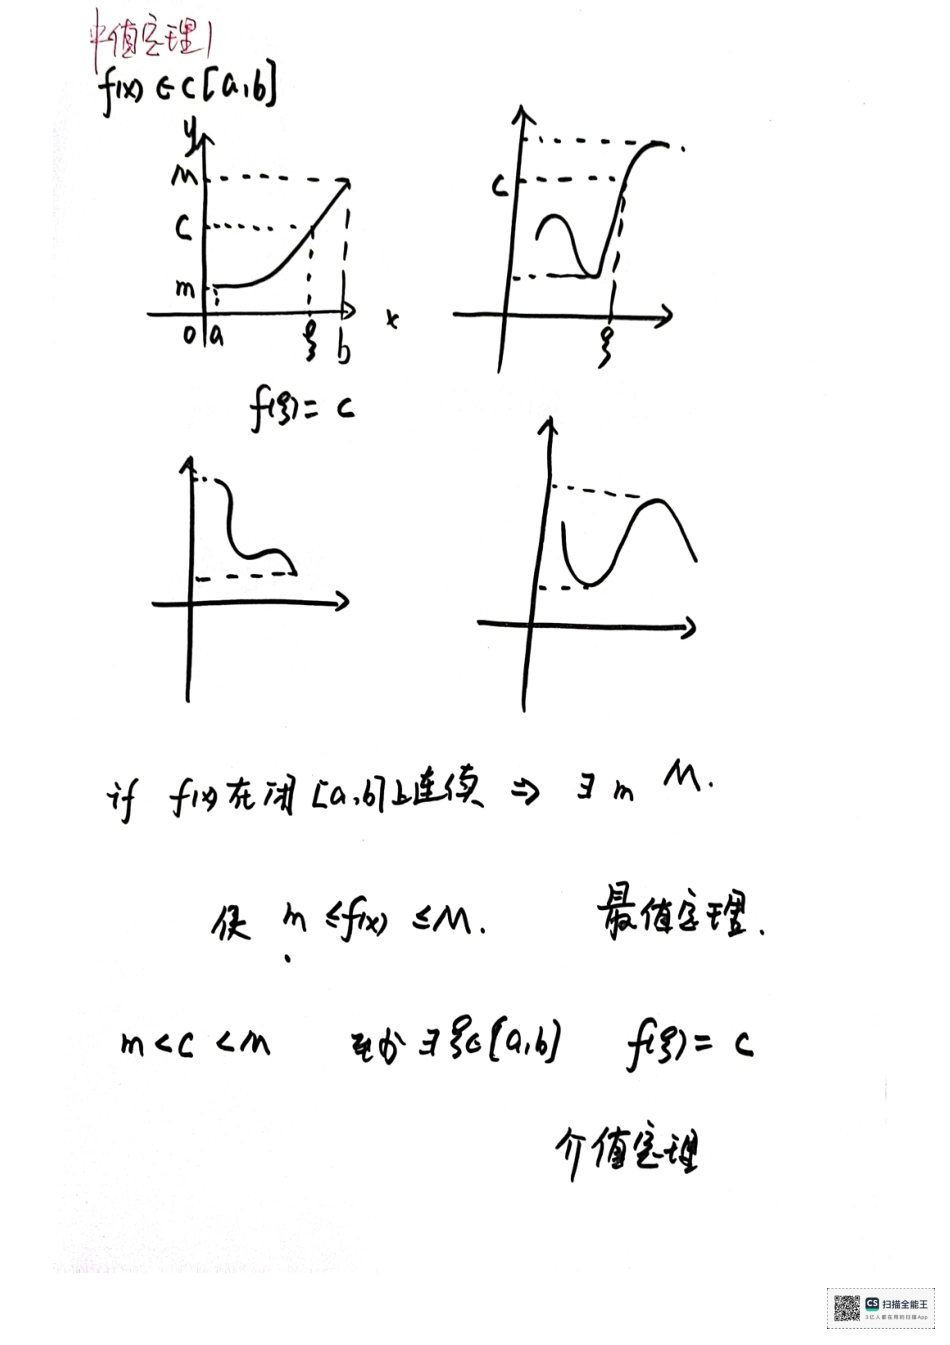 中值定理1
f(x) ∈ C[a,b]
y
M
C
m
0 a ξ b x
C
ξ
f(ξ) = c
if f(x)在闭[a,b]上连续 ⇒ ∃ m M.
使 m ≤ f(x) ≤ M. 最值定理.
m < c < M 至少 ∃ ξ∈[a,b] f(ξ) = c
介值定理
CS 扫描全能王
3亿人都在用的扫描App